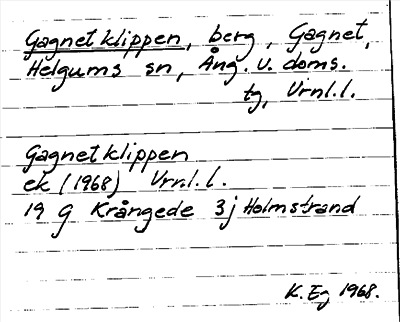 Gagnetklippen, berg, Gagnet,
Helgums sn, Ång. V. doms.
tg, Vrnl.l.
Gagnetklippen
ek (1968) Vrnl.l.
19 G Krångede 3j Holmstrand
K. Eg 1968.